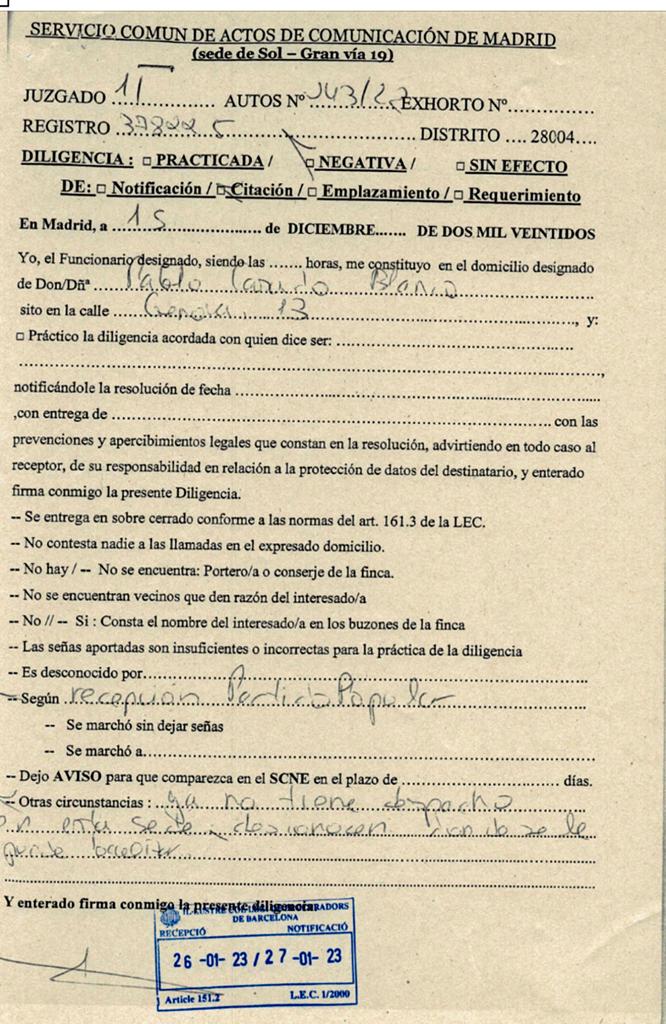 SERVICIO COMUN DE ACTOS DE COMUNICACIÓN DE MADRID
(sede de Sol – Gran vía 19)
JUZGADO 11 AUTOS Nº 343/22 EXHORTO Nº
REGISTRO 37822 5 DISTRITO .... 28004....
DILIGENCIA : □ PRACTICADA / □ NEGATIVA / □ SIN EFECTO
DE: □ Notificación / □ Citación / □ Emplazamiento / □ Requerimiento
En Madrid, a 15 de DICIEMBRE....... DE DOS MIL VEINTIDOS
Yo, el Funcionario designado, siendo las ....... horas, me constituyo en el domicilio designado
de Don/Dñª Pablo Casado Blanco
sito en la calle Genova, 13, y:
□ Práctico la diligencia acordada con quien dice ser:
notificándole la resolución de fecha
,con entrega de con las
prevenciones y apercibimientos legales que constan en la resolución, advirtiendo en todo caso al
receptor, de su responsabilidad en relación a la protección de datos del destinatario, y enterado
firma conmigo la presente Diligencia.
-- Se entrega en sobre cerrado conforme a las normas del art. 161.3 de la LEC.
-- No contesta nadie a las llamadas en el expresado domicilio.
-- No hay / -- No se encuentra: Portero/a o conserje de la finca.
-- No se encuentran vecinos que den razón del interesado/a
-- No // -- Si : Consta el nombre del interesado/a en los buzones de la finca
-- Las señas aportadas son insuficientes o incorrectas para la práctica de la diligencia
-- Es desconocido por
-- Según recepción Partido Popular
-- Se marchó sin dejar señas
-- Se marchó a
-- Dejo AVISO para que comparezca en el SCNE en el plazo de días.
-- Otras circunstancias : ya no tiene despacho
en esta sede, desconocen donde se le
puede localizar.
Y enterado firma conmigo la presente diligencia.
IL·LUSTRE COL·LEGI PROCURADORS
DE BARCELONA
RECEPCIÓ NOTIFICACIÓ
26 -01- 23 / 27 -01- 23
Article 151.2 L.E.C. 1/2000